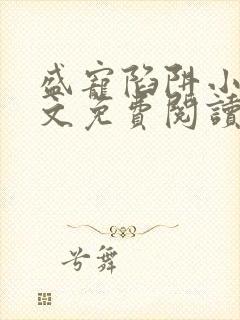 盛寵陷阱小
文免費閱讀
兮舞